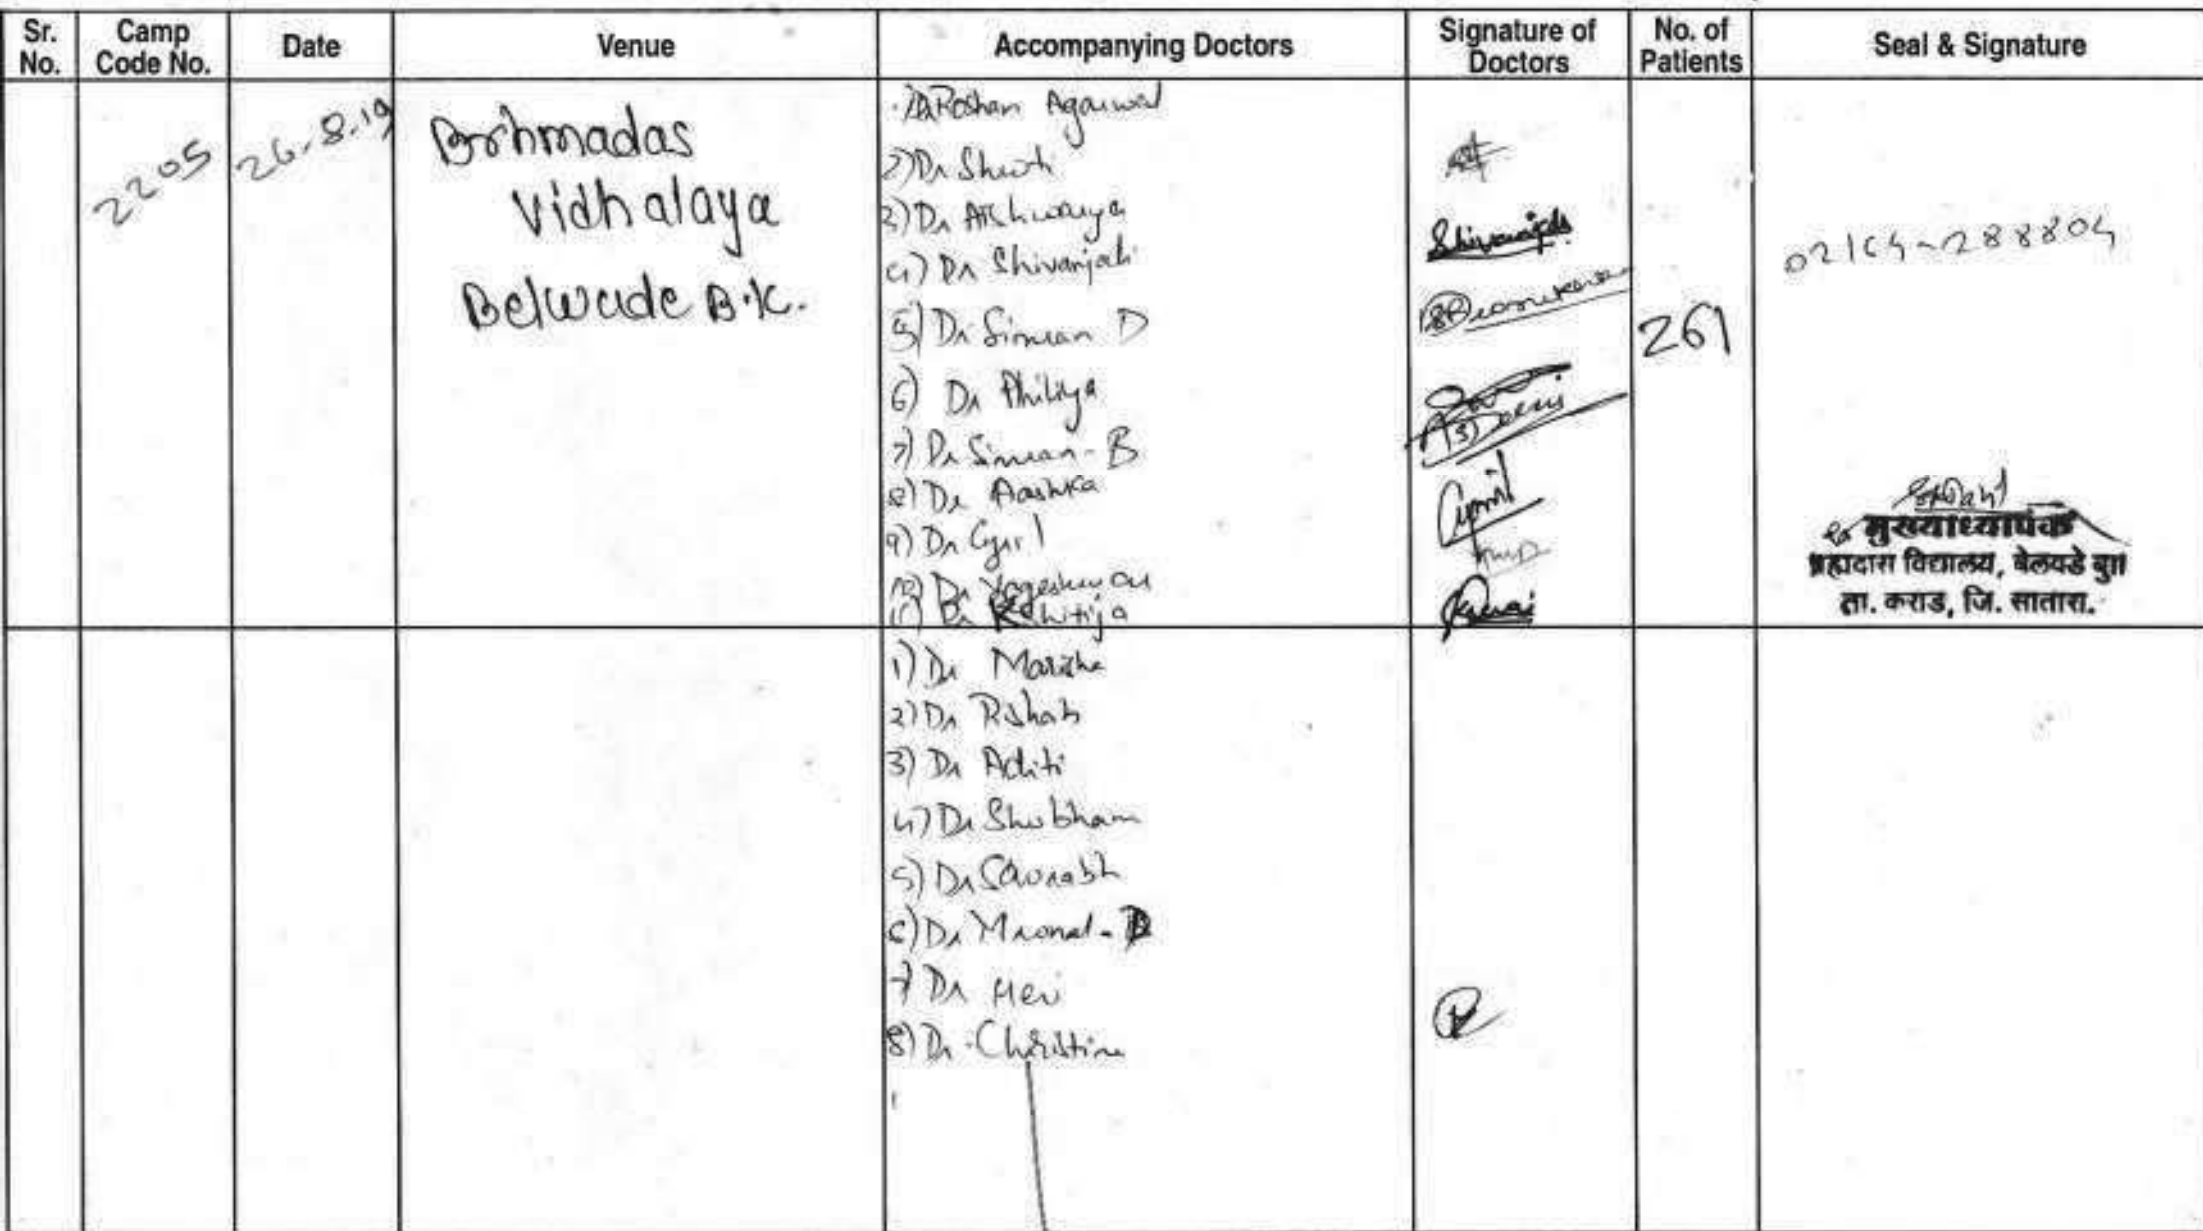 Sr. No. Camp Code No. Date Venue Accompanying Doctors Signature of Doctors No. of Patients Seal & Signature
2205 26-8-19
Brhmadas
Vidhalaya
Belwade B.K.
Dr Roshan Agarwal
2) Dr Shruti
3) Dr Aishwarya
4) Dr Shivanjali
5) Dr Simran D
6) Dr
7) Dr Simran - B
8) Dr Aashka
9) Dr Cyril
10) Dr Yogeshwari
11) Dr Kshitija
Shivanjali
261
02164-288804
मुख्याध्यापक
ब्रह्मदास विद्यालय, बेलवडे बु॥
ता. कराड, जि. सातारा.
1) Dr Marisha
2) Dr Rishab
3) Dr Aditi
4) Dr Shubham
5) Dr Saurabh
6) Dr Mronal - D
7) Dr Hevi
8) Dr. Christina